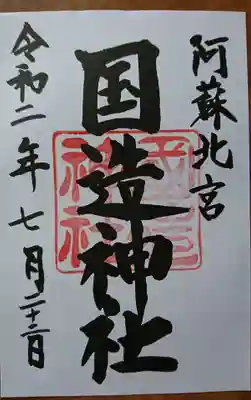 阿蘇北宮
国造神社
令和二年七月二十三日